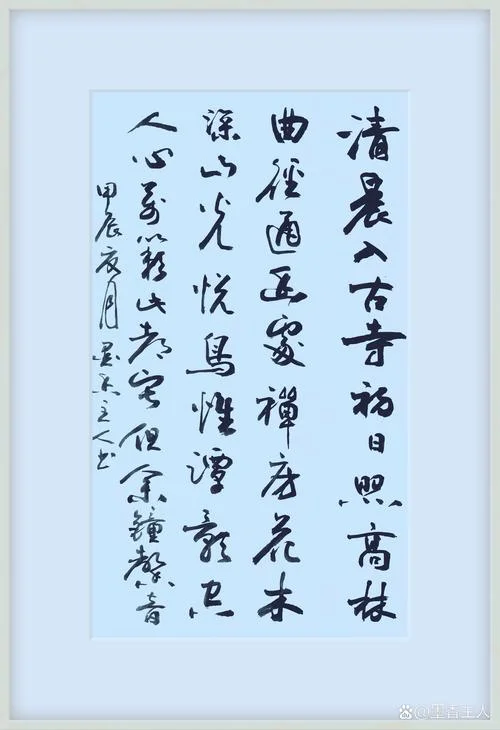 清晨入古寺初日照高林
曲徑通幽處禪房花木
深山光悦鳥惟潭影空
人心萬籟此都寂但余鐘磬音
甲辰夏月墨香主人书
@墨香主人